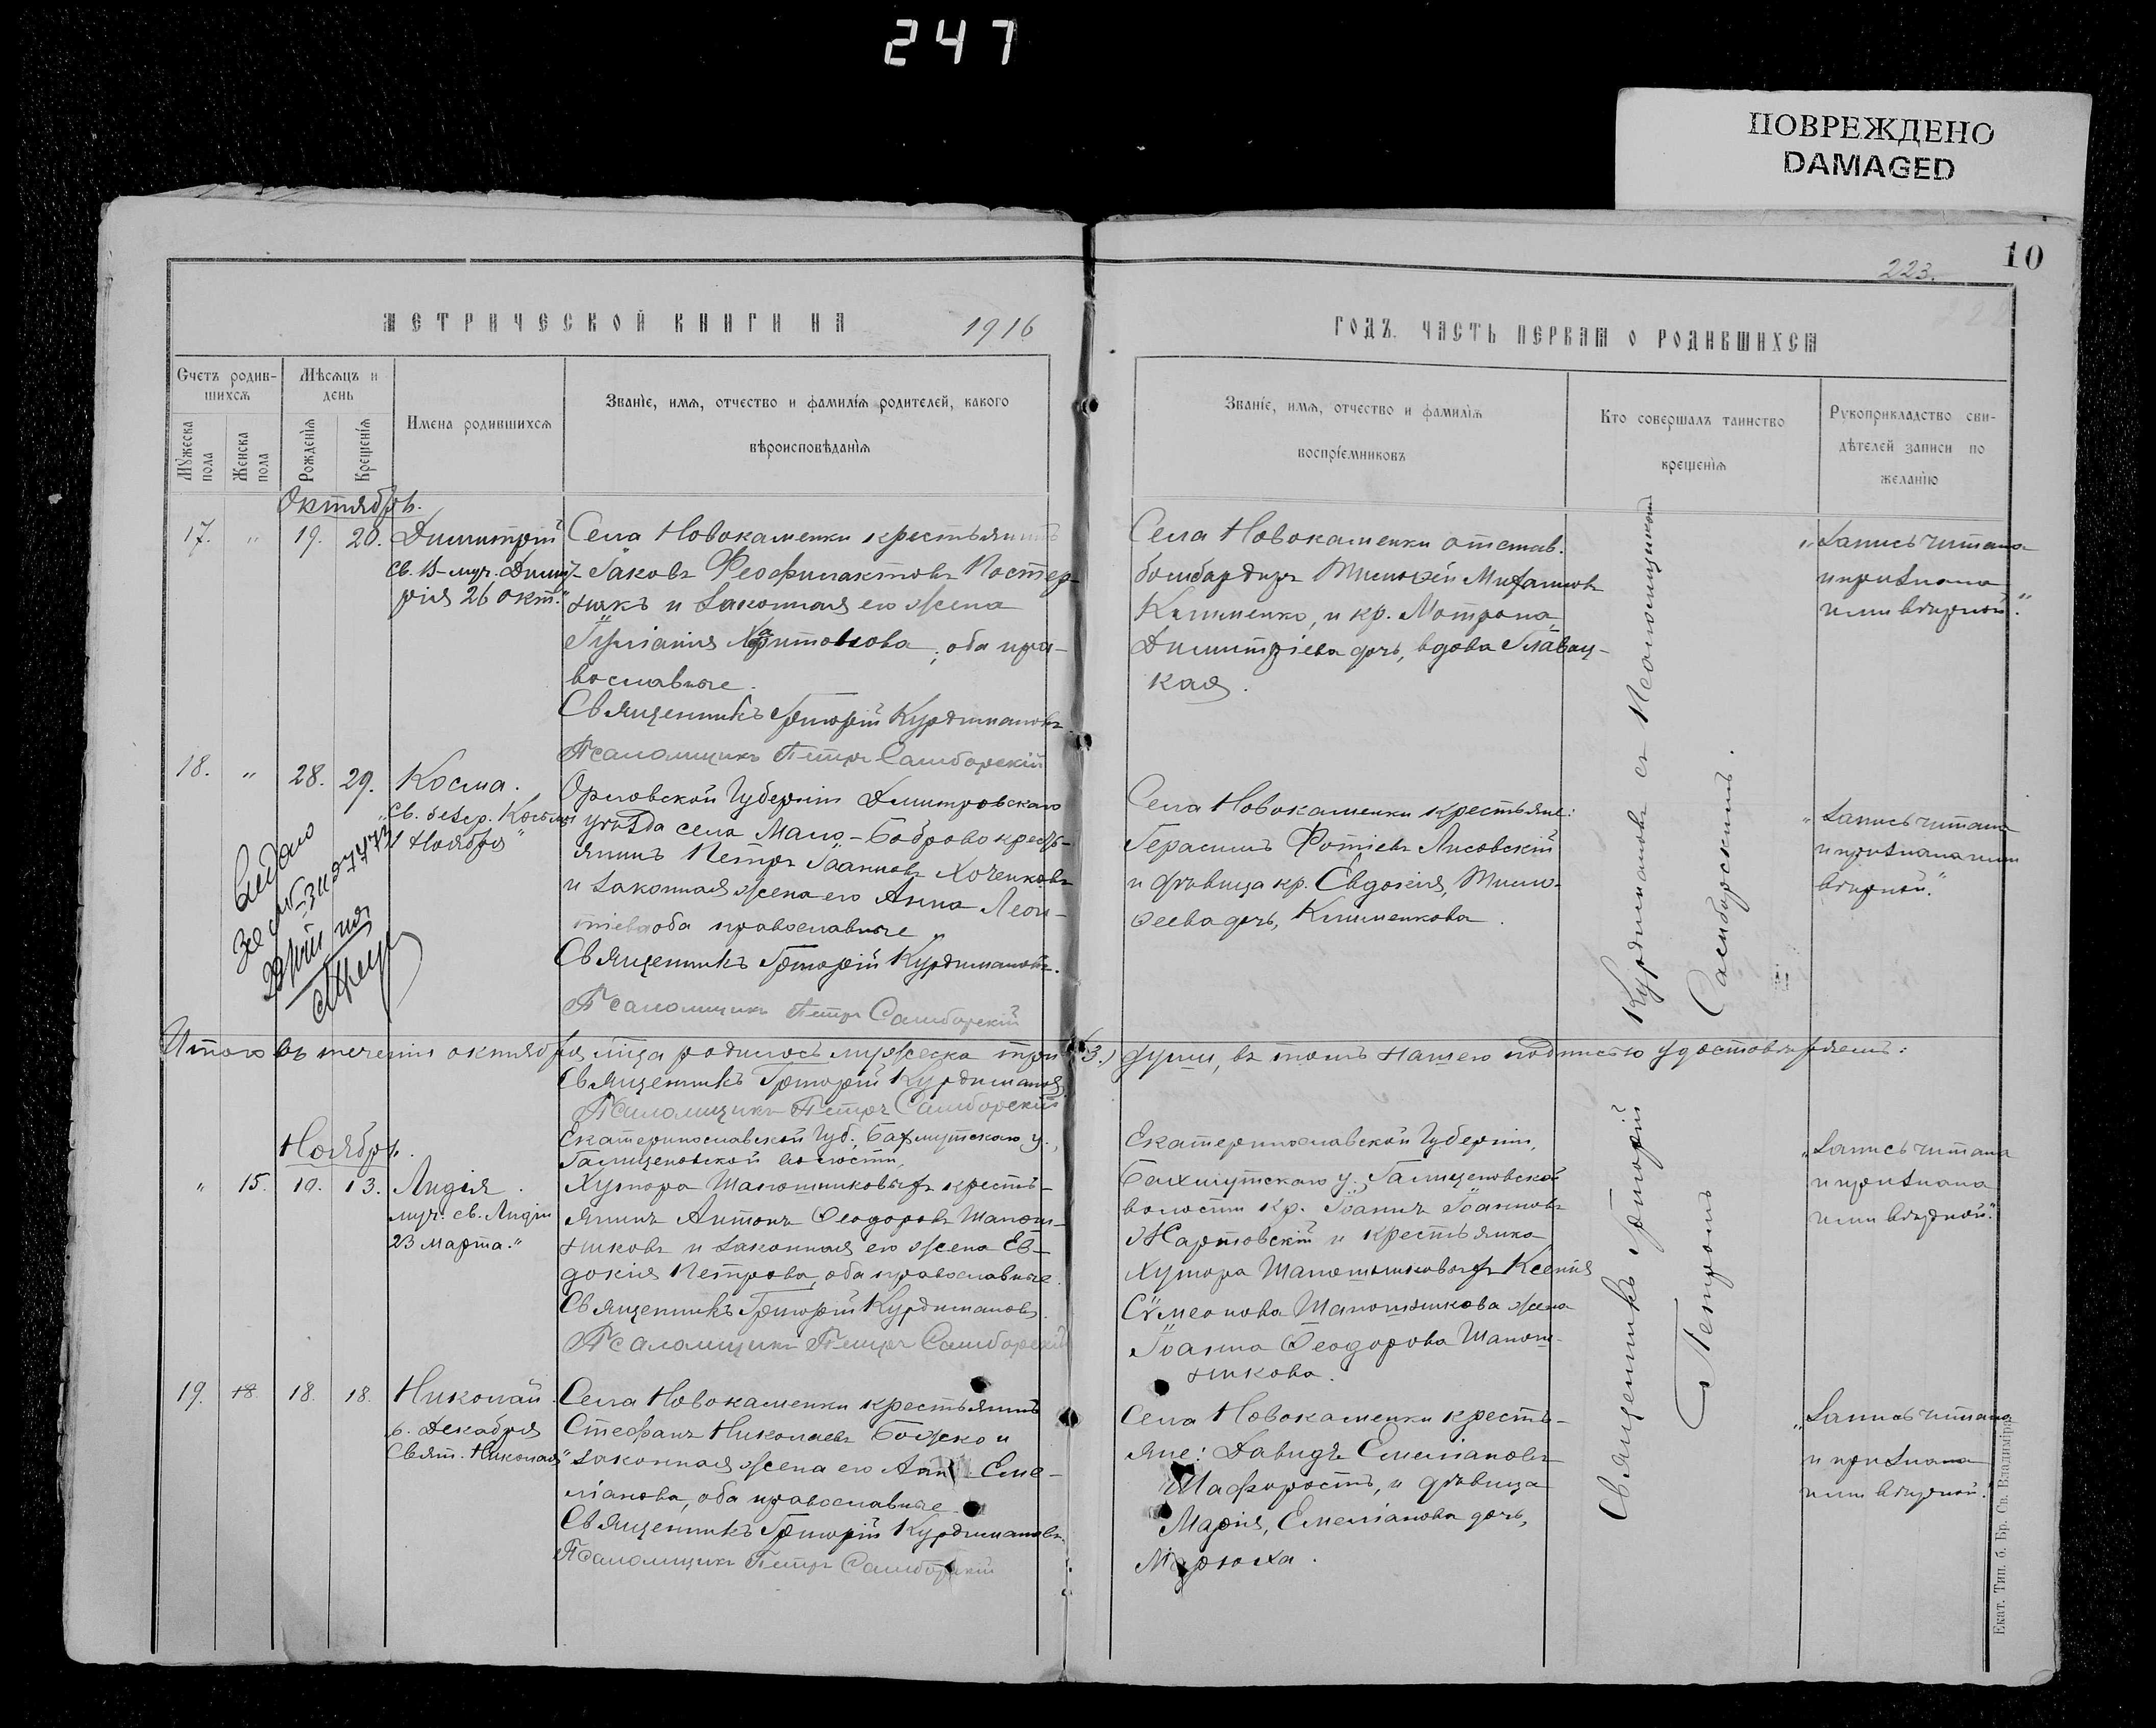 247
ПОВРЕЖДЕНО
DAMAGED
10
223.
МЕТРИЧЕСКОЙ КНИГИ НА 1916
ГОДЪ. ЧАСТЬ ПЕРВАЯ О РОДИВШИХСЯ
Счетъ родив-
шихся
Мужеска пола
Женска пола
Мѣсяцъ и
день
Рожденія
Крещенія
Имена родившихся
Званіе, имя, отчество и фамилія родителей, какого
вѣроисповѣданія
Званіе, имя, отчество и фамилія
воспріемниковъ
Кто совершалъ таинство
крещенія
Рукоприкладство сви-
дѣтелей записи по
желанію
Октябрь.
17. " 19. 20. Димитрій
св. В-муч. Дими-
рія 26 окт."
Села Новокаменки крестьянинъ
Іаковъ Феофилактовъ Постер-
накъ и законная его жена
Іуліанія Харитонова, оба пра-
вославные.
Священникъ Григорій Курдимановъ
Псаломщикъ Петръ Самборскій
Села Новокаменки отстав.
бомбардиръ Тимоѳей Михаиловъ
Клименко, и кр. Мотрона
Димитріева дочь, вдова Главац-
кая.
"Запись читана
и признана
ими вѣрной."
18. " 28. 29. Косма.
"Св. безср. Космы
1 Ноября"
Орловской Губерніи Дмитровскаго
уѣзда села Мало-Боброво кресть-
янинъ Петръ Іоанновъ Хоченковъ
и законная жена его Анна Леон-
тіева оба православные
Священникъ Григорій Курдимановъ.
Псаломщикъ Петръ Самборскій
Села Новокаменки крестьяне:
Герасимъ Фотіевъ Лисовскій
и дѣвица кр. Евдокія, Тимо-
ѳеева дочь, Клименкова.
"Запись читана
и признана ими
вѣрной."
Видано
Итого въ теченіи октября м-ца родилось мужеска три (3.) души, въ томъ нашею подписью удостовѣряемъ:
Священникъ Григорій Курдимановъ
Псаломщикъ Петръ Самборскій
Ноябрь.
" 15. 10. 13. Лидія.
муч. св. Лидіи
23 марта."
Екатеринославской Губ., Бахмутскаго у.,
Галиценовской волости,
Хутора Шапошниковыхъ кресть-
янинъ Антонъ Ѳеодоровъ Шапош-
никовъ и законная его жена Ев-
докія Петрова, оба православные.
Священникъ Григорій Курдимановъ.
Псаломщикъ Петръ Самборскій
Екатеринославской Губерніи,
Бахмутскаго у., Галиценовской
волости кр. Іоаннъ Іоанновъ
Жартовскій и крестьянка
Хутора Шапошниковыхъ Ксенія
Сѵмеонова Шапошникова жена
Іоанна Ѳеодорова Шапош-
никова.
"Запись читана
и признана
ими вѣрной."
19. 18. 18. 18. Николай.
6. Декабря
Свят. Николая"
Села Новокаменки крестьянинъ
Стефанъ Николаевъ Божко и
законная жена его Анна Еме-
ліанова, оба православные
Священникъ Григорій Курдимановъ.
Псаломщикъ Петръ Самборскій
Села Новокаменки кресть-
яне: Давидъ Емеліановъ
Шафоростъ, и дѣвица
Марія, Емеліанова дочь,
Марюха.
"Запись читана
и признана
ими вѣрной."
Священникъ Григорій Курдимановъ съ Псаломщикомъ
Петромъ Самборскимъ.
Екат. Тип. б. Бр. Св. Владиміра